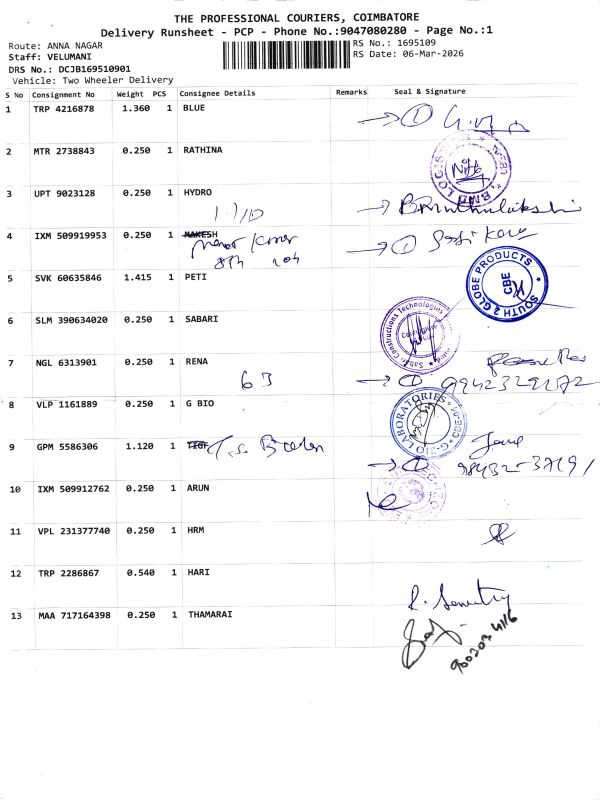 THE PROFESSIONAL COURIERS, COIMBATORE
Delivery Runsheet - PCP - Phone No.:9047080280 - Page No.:1
Route: ANNA NAGAR
RS No.: 1695109
Staff: VELUMANI
RS Date: 06-Mar-2026
DRS No.: DCJB169510901
Vehicle: Two Wheeler Delivery
S No Consignment No Weight PCS Consignee Details Remarks Seal & Signature
1 TRP 4216878 1.360 1 BLUE
2 MTR 2738843 0.250 1 RATHINA
3 UPT 9023128 0.250 1 HYDRO
4 IXM 509919953 0.250 1 MAKESH
5 SVK 60635846 1.415 1 PETI
SOUTH 2 GLOBE PRODUCTS
CBE
6 SLM 390634020 0.250 1 SABARI
7 NGL 6313901 0.250 1 RENA
63
8 VLP 1161889 0.250 1 G BIO
G-BIO LABORATORIES
9 GPM 5586306 1.120 1
10 IXM 509912762 0.250 1 ARUN
11 VPL 231377740 0.250 1 HRM
12 TRP 2286867 0.540 1 HARI
13 MAA 717164398 0.250 1 THAMARAI